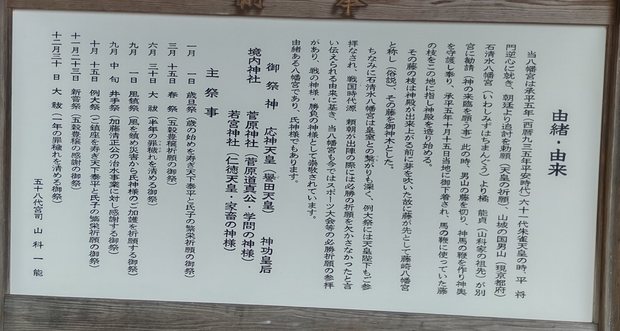 奉 納
由緒・由来
当八幡宮は承平五年(西暦九三五年平安時代)六十一代朱雀天皇の時、平 将
門逆心に就き、朝廷より追討を勅願(天皇の祈願)、山城の国男山(現京都府)
石清水八幡宮(いわしみずはちまんぐう)より橘 能貞(山科家の祖先)が別
宮に勧請(神の来臨を願う事)此の時、男山の藤を切り、神馬の鞭を作り神輿
を守護し奉り、承平五年十月十五日当緒に御下着され、馬の鞭に使っていた藤
の枝をこの地に指し神殿を造り始める。
その藤の枝は神殿が出来上がる前に芽を吹いた故に藤が先として藤崎八幡宮
と称し(俗説)、その藤を御神木とした。
ちなみに石清水八幡宮は皇室との繋がりも深く、例大祭には天皇陛下もご参
拝なされ、戦国時代源 頼朝が出陣の際には必勝の祈願を欠かさなかったと言
い伝えられる由来に基き、当八幡宮も今ではスポーツ大会等の必勝祈願の参拝
があり、戦の神様・勝負の神様として崇敬されています。
由緒ある八幡宮であり、氏神様でもあります。
御 祭 神 応神天皇(誉田天皇) 神功皇后
境内神社 菅原神社(菅原道真公・学問の神様)
若宮神社(仁徳天皇・家畜の神様)
主 祭 事
一月 一日 歳旦祭(歳の始めを寿ぎ天下泰平と氏子の繁栄祈願の御祭)
三月 十五日 春 祭(五穀豊穣祈願の御祭)
六月 三十日 大 祓(半年の罪穢れを清める御祭)
九月 一日 風鎮祭(風を鎮め災害から氏神様のご加護を祈願する御祭)
九月 中 旬 井手祭(加藤清正公の治水事業に対し感謝する御祭)
十月 十五日 例大祭(ご鎮座を寿ぎ天下泰平と氏子の繁栄祈願の御祭)
十一月二十三日 新嘗祭(五穀豊穣の感謝の御祭)
十二月三十日 大 祓(一年の罪穢れを清める御祭)
五十八代宮司 山 科 一 能